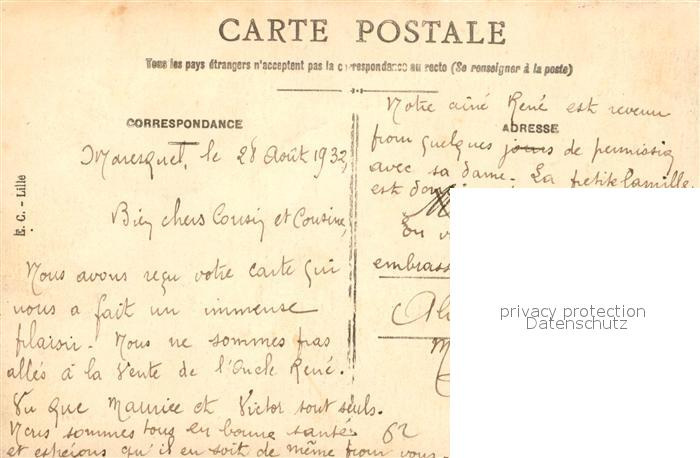 CARTE POSTALE
Tous les pays étrangers n'acceptent pas la correspondance au recto (Se renseigner à la poste)
CORRESPONDANCE
E. C. - Lille
Maresquel, le 28 Août 1932,
Bien chers Cousin et Cousine,
Nous avons reçu votre carte qui
nous a fait un immense
plaisir. Nous ne sommes pas
allés à la Vente de l'Oncle René.
Vu que Maurice et Victor sont seuls.
Nous sommes tous en bonne santé
et espérons qu'il en soit de même pour vous.
ADRESSE
Notre ainé René est revenu
pour quelques jours de permission
avec sa dame. La petite famille
est
embrass
62
privacy protection
Datenschutz